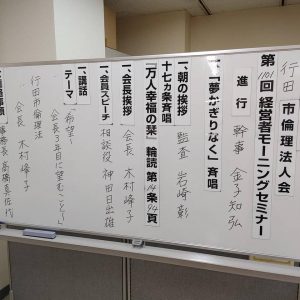 行田市倫理法人会
第1101回 経営者モーニングセミナー
進行 幹事 金子知弘
一、「夢かぎりなく」斉唱
一、朝の挨拶 監査 岩崎彰
十七ヵ条斉唱
「万人幸福の栞」輪読 第14条94頁
一、会長挨拶 会長 木村峰子
一、会員スピーチ 相談役 神田日出雄
一、講話
テーマ 〜希望〜
会長3年目に望むこと
行田市倫理法人会
会長 木村峰子